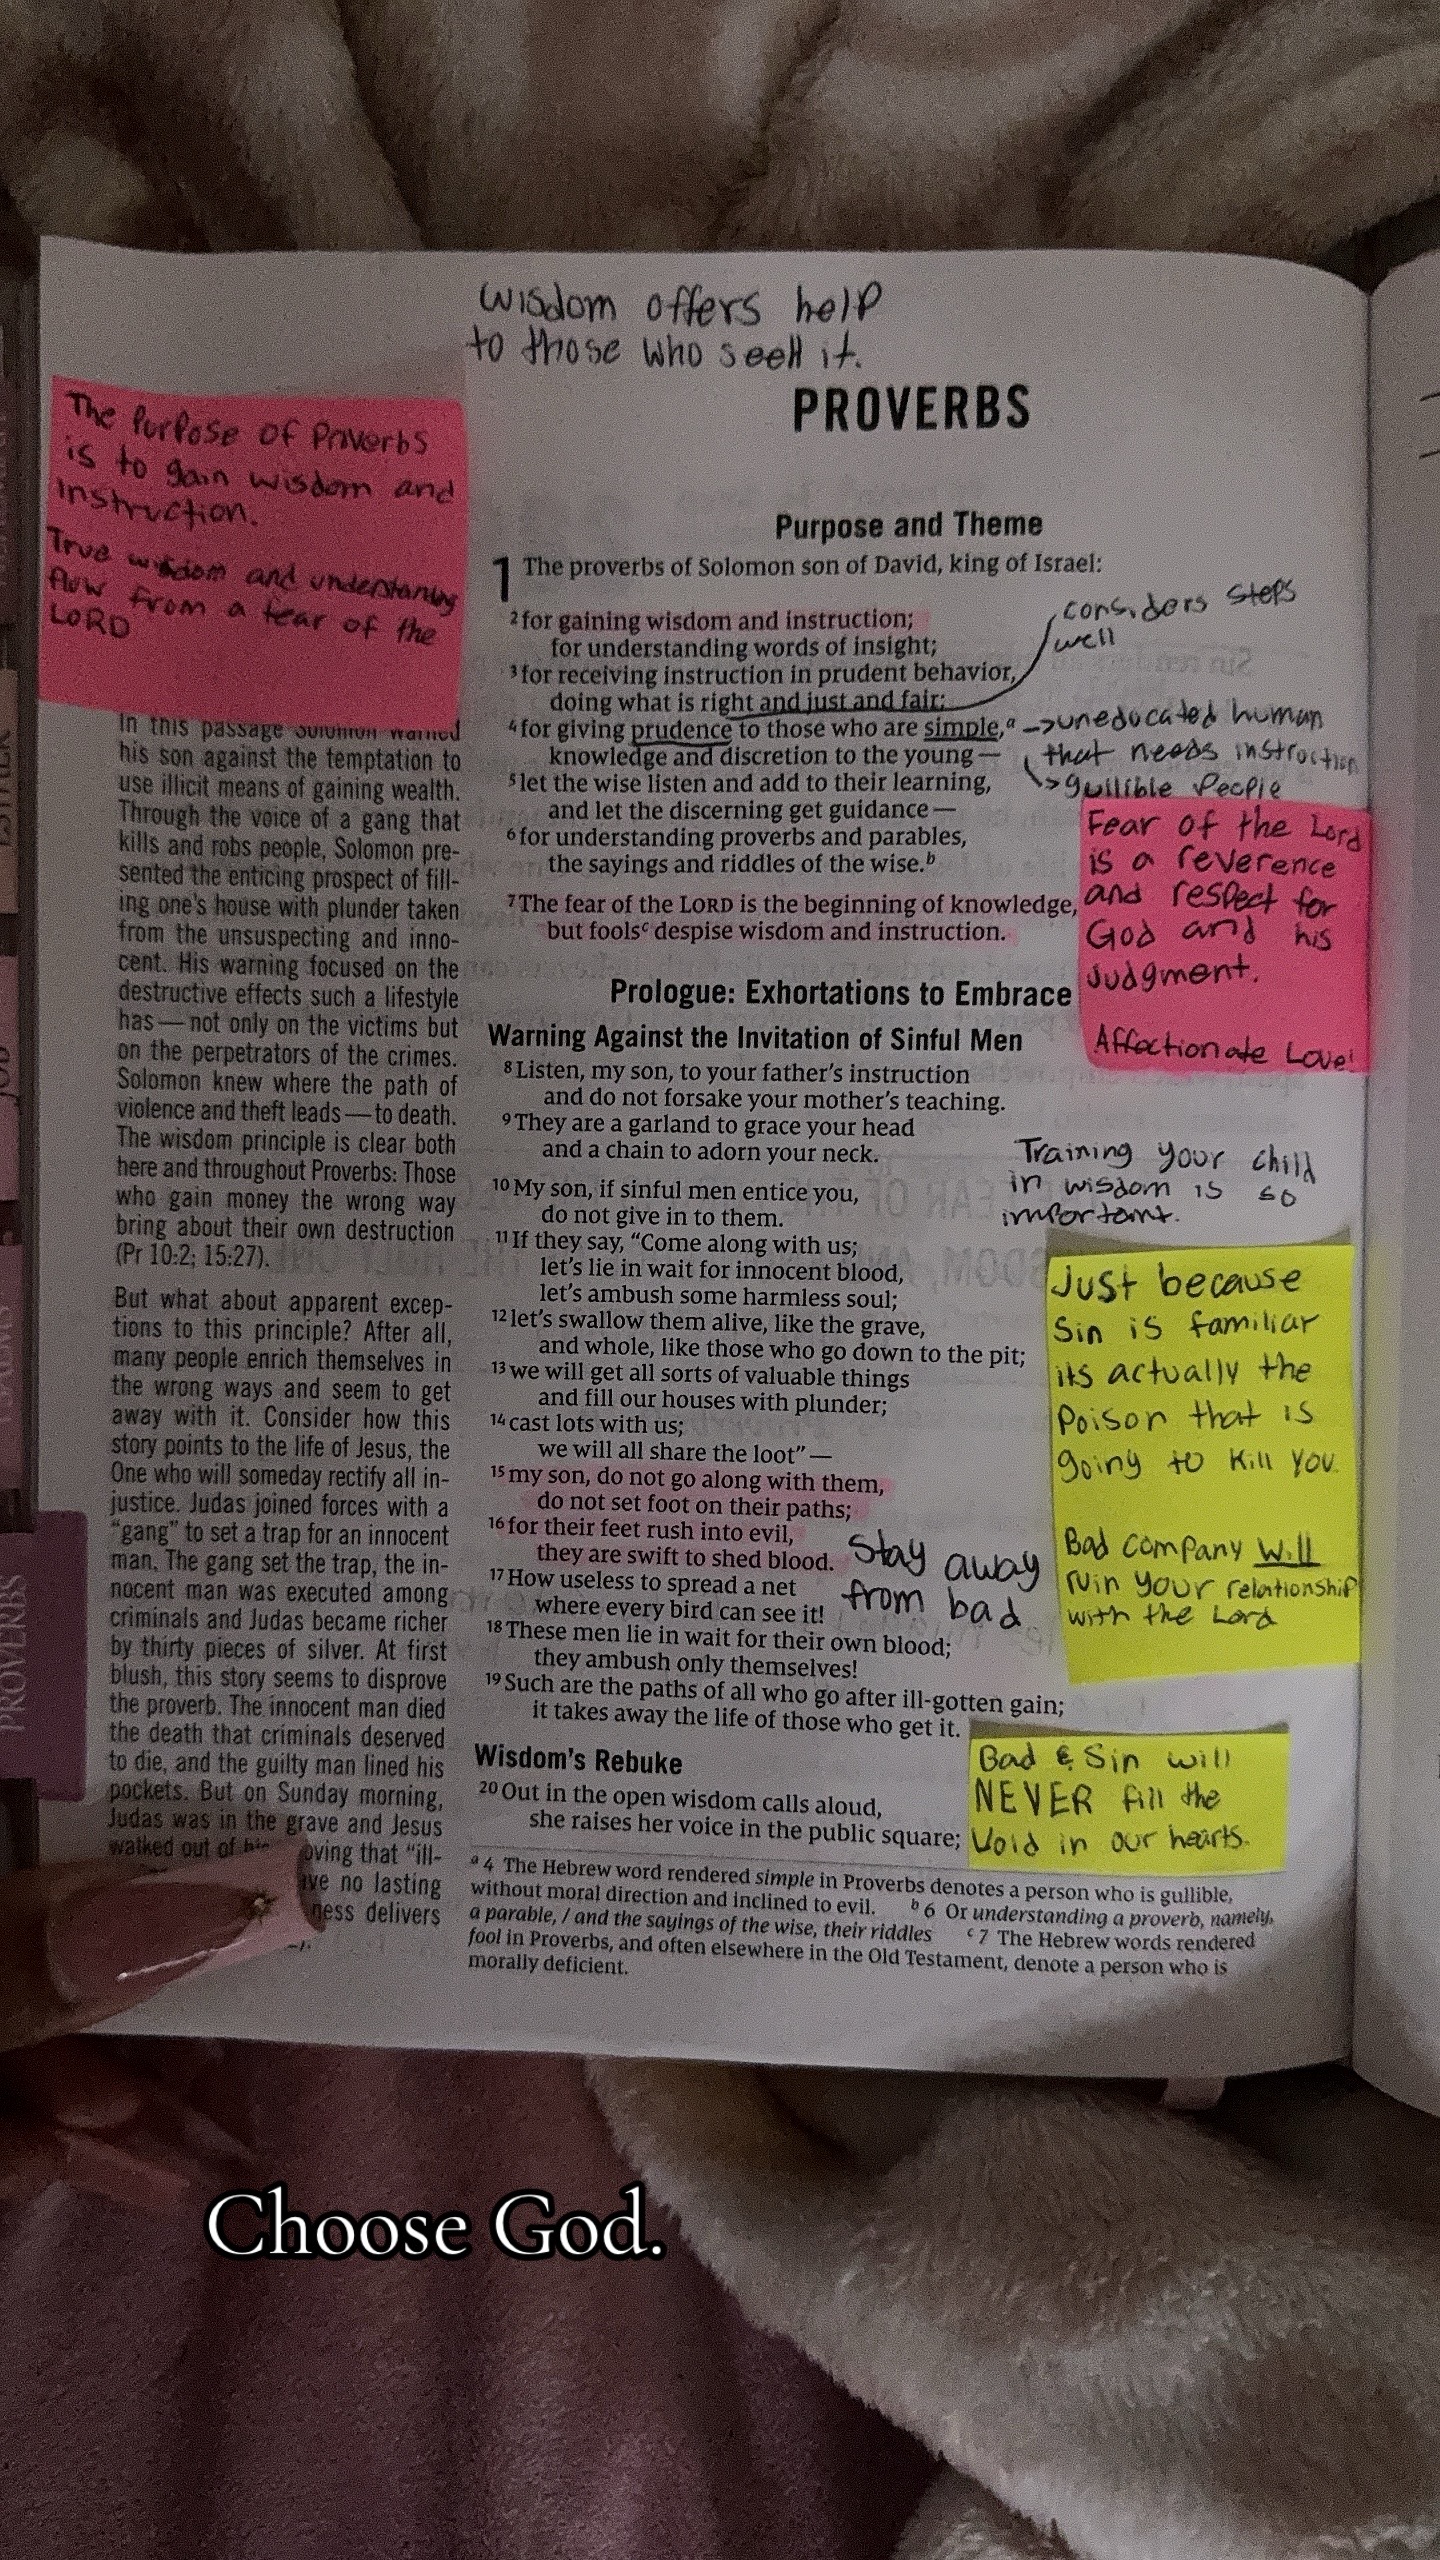 wisdom offers help
to those who seek it.
The Purpose of Proverbs
is to gain wisdom and
instruction.
True wisdom and understaning
flow from a fear of the
LORD
PROVERBS
Purpose and Theme
1 The proverbs of Solomon son of David, king of Israel:
2 for gaining wisdom and instruction;
for understanding words of insight;
3 for receiving instruction in prudent behavior,
doing what is right and just and fair;
4 for giving prudence to those who are simple,a
knowledge and discretion to the young—
5 let the wise listen and add to their learning,
and let the discerning get guidance—
6 for understanding proverbs and parables,
the sayings and riddles of the wise.b
7 The fear of the LORD is the beginning of knowledge,
but foolsc despise wisdom and instruction.
considers steps
well
->uneducated human
that needs instruction
->gullible People
Fear of the Lord
is a reverence
and respect for
God and his
Judgment.
Affectionate Love!
Prologue: Exhortations to Embrace
Warning Against the Invitation of Sinful Men
8 Listen, my son, to your father's instruction
and do not forsake your mother's teaching.
9 They are a garland to grace your head
and a chain to adorn your neck.
10 My son, if sinful men entice you,
do not give in to them.
11 If they say, "Come along with us;
let's lie in wait for innocent blood,
let's ambush some harmless soul;
12 let's swallow them alive, like the grave,
and whole, like those who go down to the pit;
13 we will get all sorts of valuable things
and fill our houses with plunder;
14 cast lots with us;
we will all share the loot"—
15 my son, do not go along with them,
do not set foot on their paths;
16 for their feet rush into evil,
they are swift to shed blood.
17 How useless to spread a net
where every bird can see it!
18 These men lie in wait for their own blood;
they ambush only themselves!
19 Such are the paths of all who go after ill-gotten gain;
it takes away the life of those who get it.
Training your child
in wisdom is so
important.
Just because
Sin is familiar
its actually the
Poison that is
going to kill you.
Bad company will
ruin your relationship
with the Lord
Stay away
from bad
Wisdom's Rebuke
20 Out in the open wisdom calls aloud,
she raises her voice in the public square;
Bad & Sin will
NEVER fill the
Void in our hearts.
a 4 The Hebrew word rendered simple in Proverbs denotes a person who is gullible,
without moral direction and inclined to evil. b 6 Or understanding a proverb, namely,
a parable, / and the sayings of the wise, their riddles c 7 The Hebrew words rendered
fool in Proverbs, and often elsewhere in the Old Testament, denote a person who is
morally deficient.
In this passage Solomon warned
his son against the temptation to
use illicit means of gaining wealth.
Through the voice of a gang that
kills and robs people, Solomon pre-
sented the enticing prospect of fill-
ing one's house with plunder taken
from the unsuspecting and inno-
cent. His warning focused on the
destructive effects such a lifestyle
has—not only on the victims but
on the perpetrators of the crimes.
Solomon knew where the path of
violence and theft leads—to death.
The wisdom principle is clear both
here and throughout Proverbs: Those
who gain money the wrong way
bring about their own destruction
(Pr 10:2; 15:27).
But what about apparent excep-
tions to this principle? After all,
many people enrich themselves in
the wrong ways and seem to get
away with it. Consider how this
story points to the life of Jesus, the
One who will someday rectify all in-
justice. Judas joined forces with a
"gang" to set a trap for an innocent
man. The gang set the trap, the in-
nocent man was executed among
criminals and Judas became richer
by thirty pieces of silver. At first
blush, this story seems to disprove
the proverb. The innocent man died
the death that criminals deserved
to die, and the guilty man lined his
pockets. But on Sunday morning,
Judas was in the grave and Jesus
walked out of oving that "ill-
ve no lasting
ness delivers
ESTHER
JOB
PSALMS
PROVERBS
Choose God.